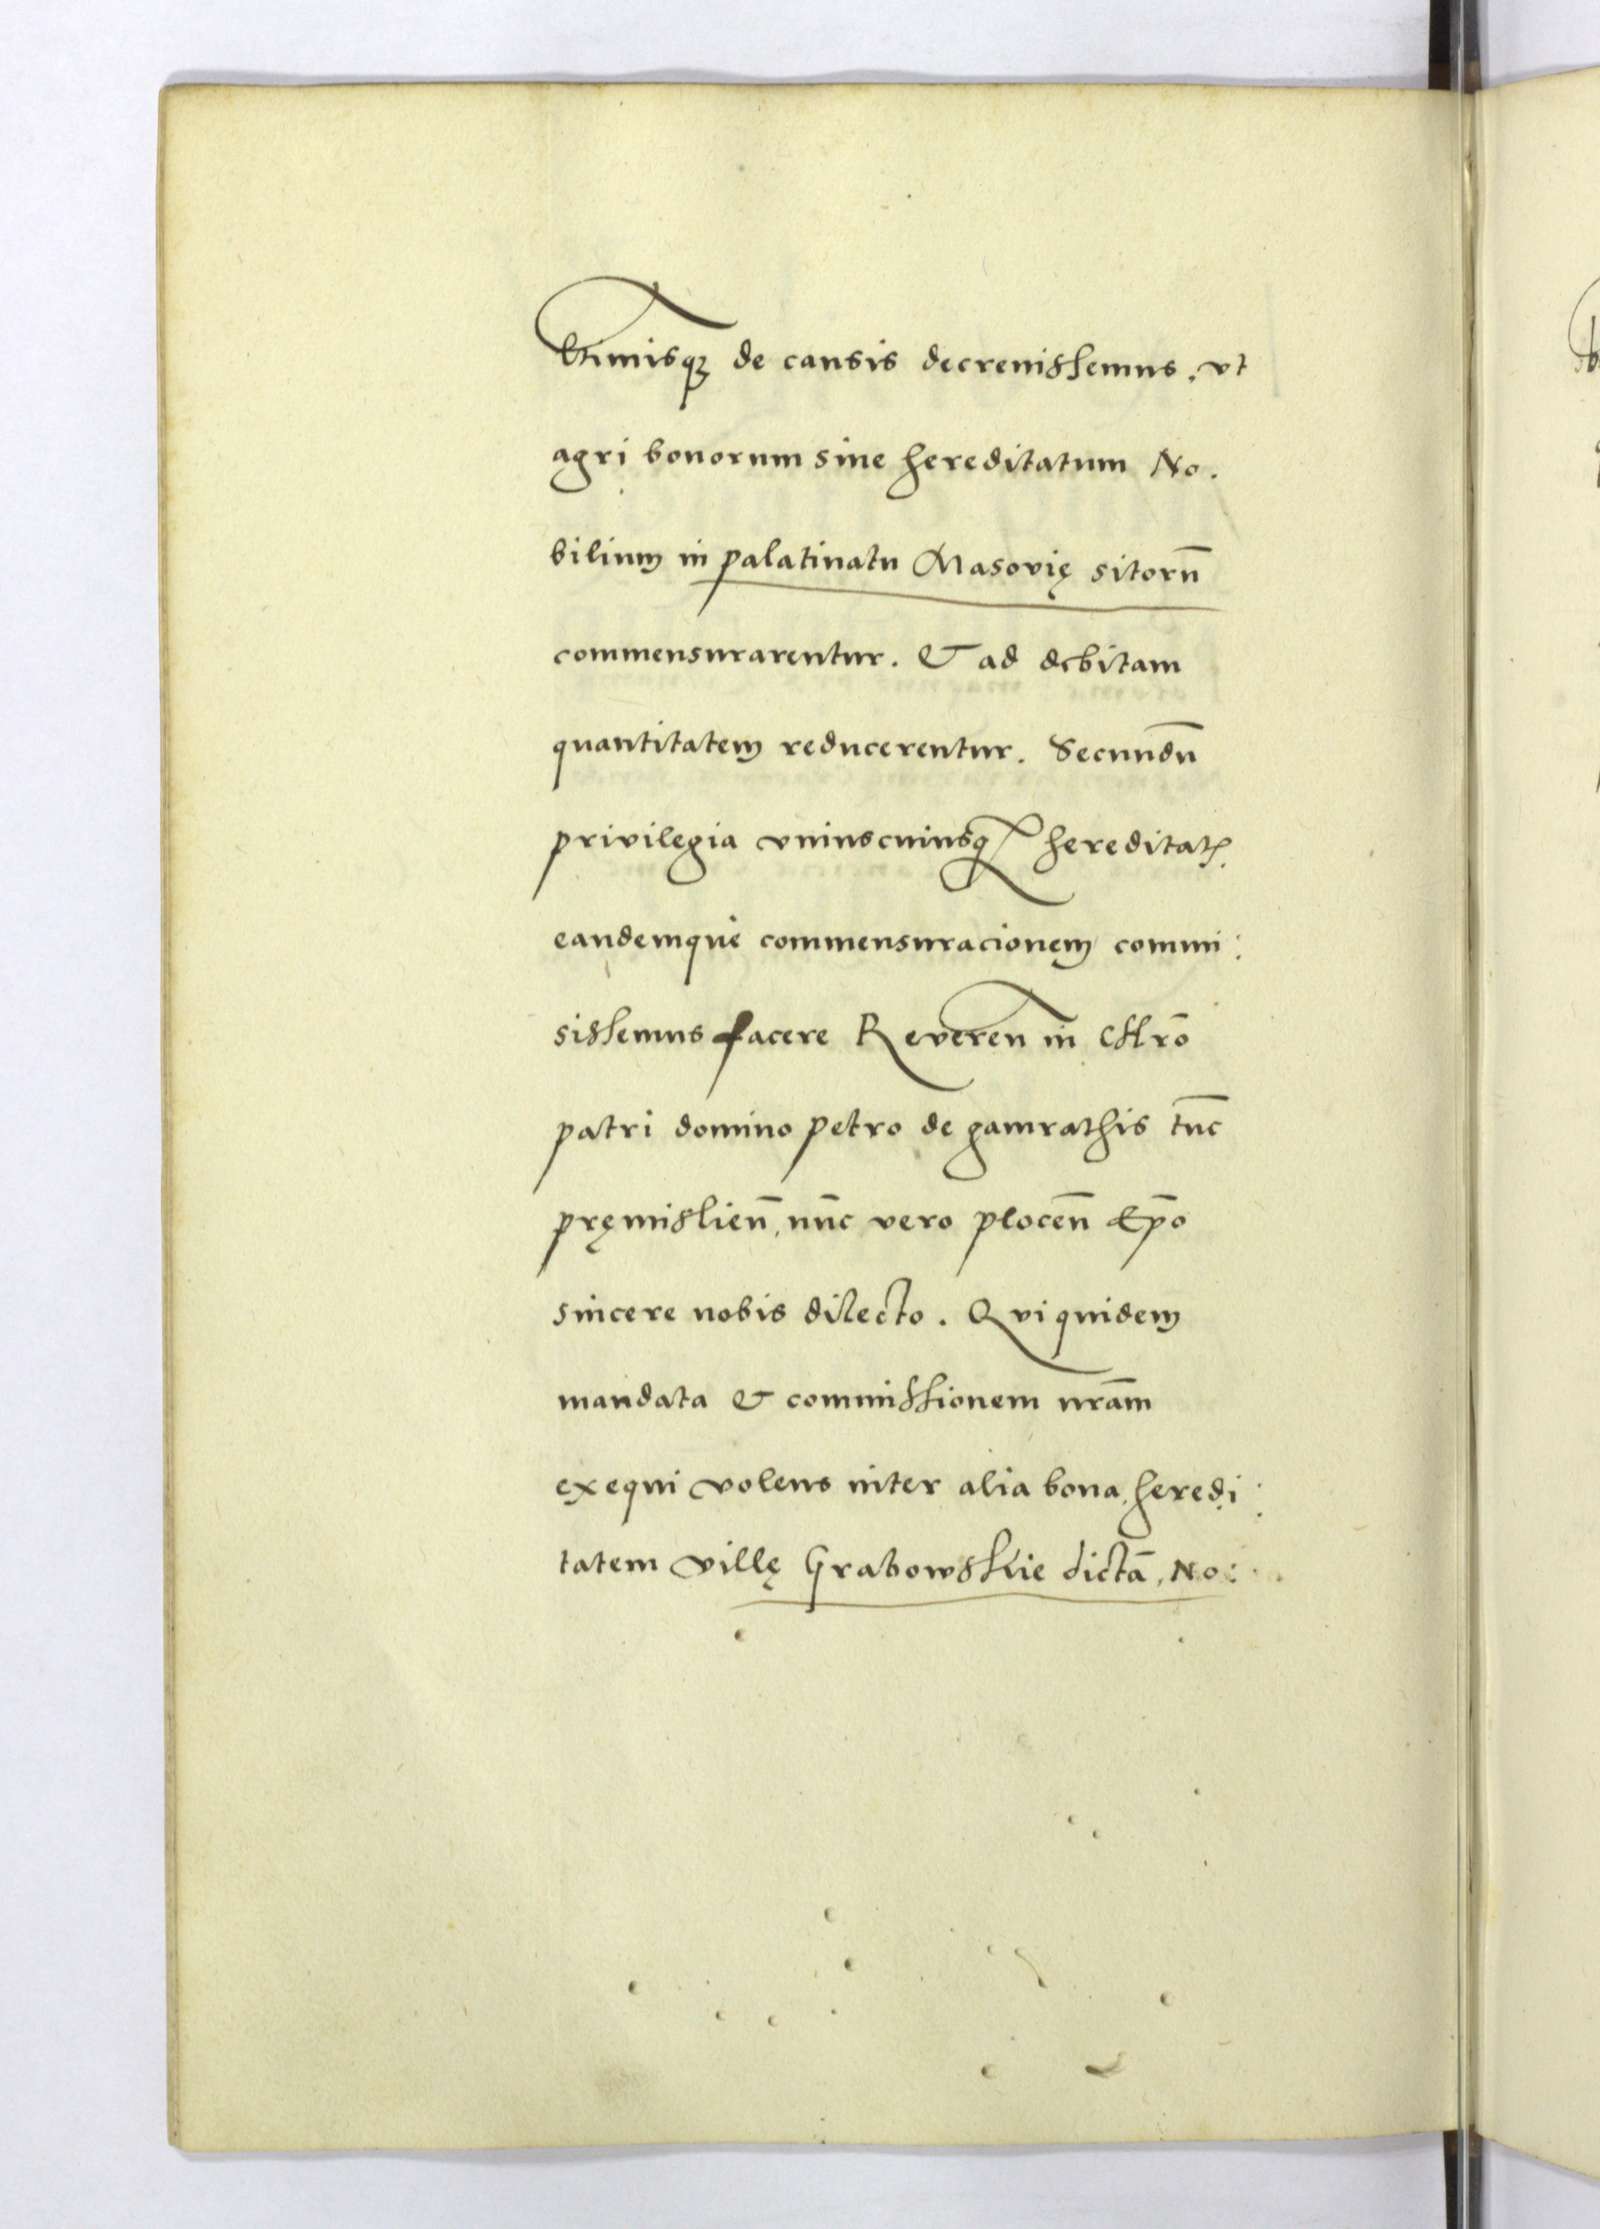 timisqꝫ de causis decreuissemus, vt
agri bonorum siue hereditatum No.
bilium in palatinatu Masovię sitorū
commensurarentur. & ad debitam
quantitatem reducerentur. Secundū
privilegia vniuscuiusqꝫ hereditatꝭ.
eandemque commensuracionem commi:
sissemus facere Reveren̄ in Chrō
patri domino petro de gamrathis tūc
pręmislien̄, nūc vero plocen̄ Ep̄o
sincere nobis dilecto. Qui quidem
mandata & commissionem nrām
exequi volens inter alia bona, heredi:
tatem villę Grabowskie dictā, No: